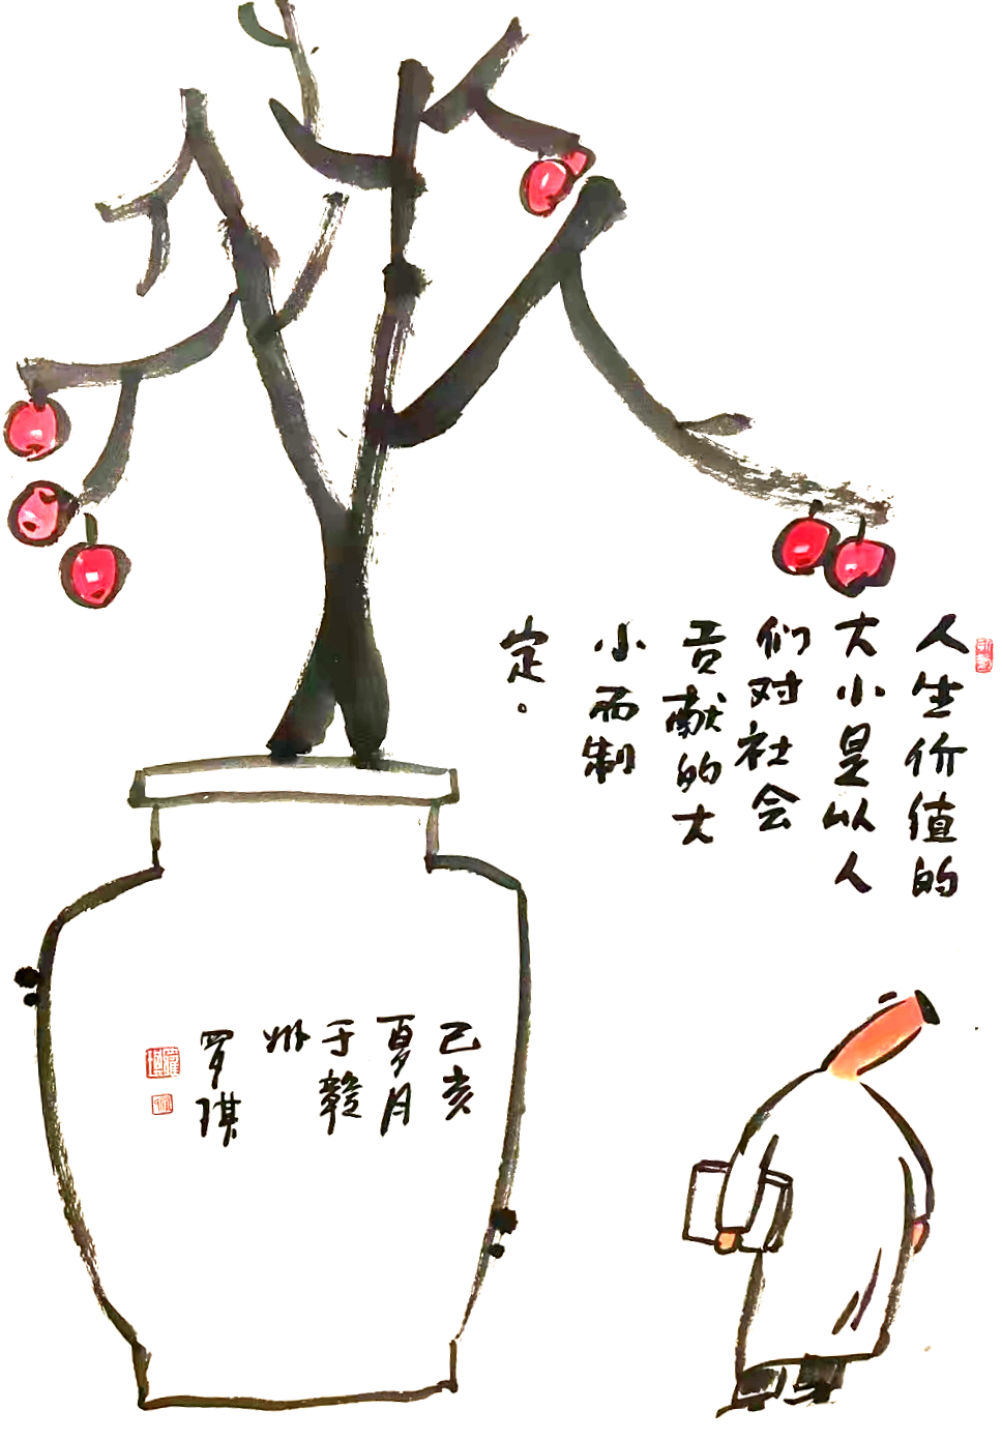 人生价值的
大小是以人
们对社会
贡献的大
小而制
定。
己亥
夏月
于赣
州
罗琪